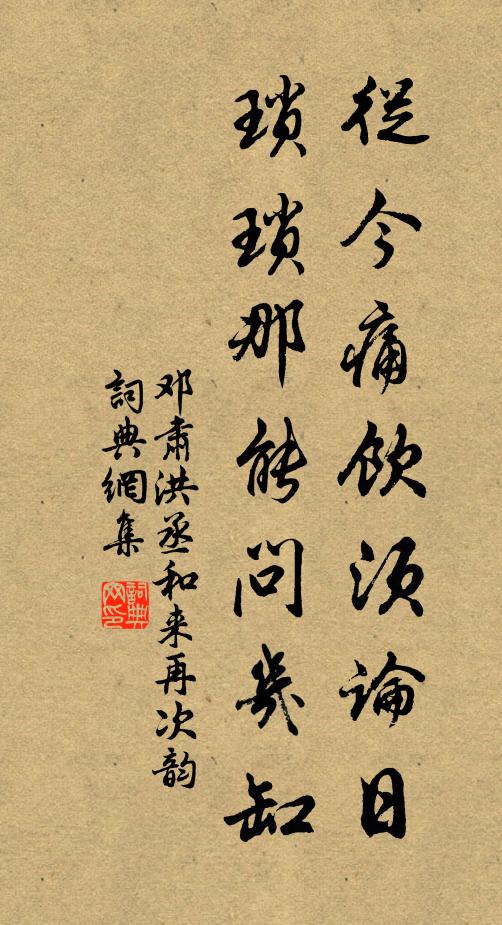 從今痛飲須論日
瑣瑣那能問幾缸
邓肅洪丞和来再次韵
詞典網集
詞典网印